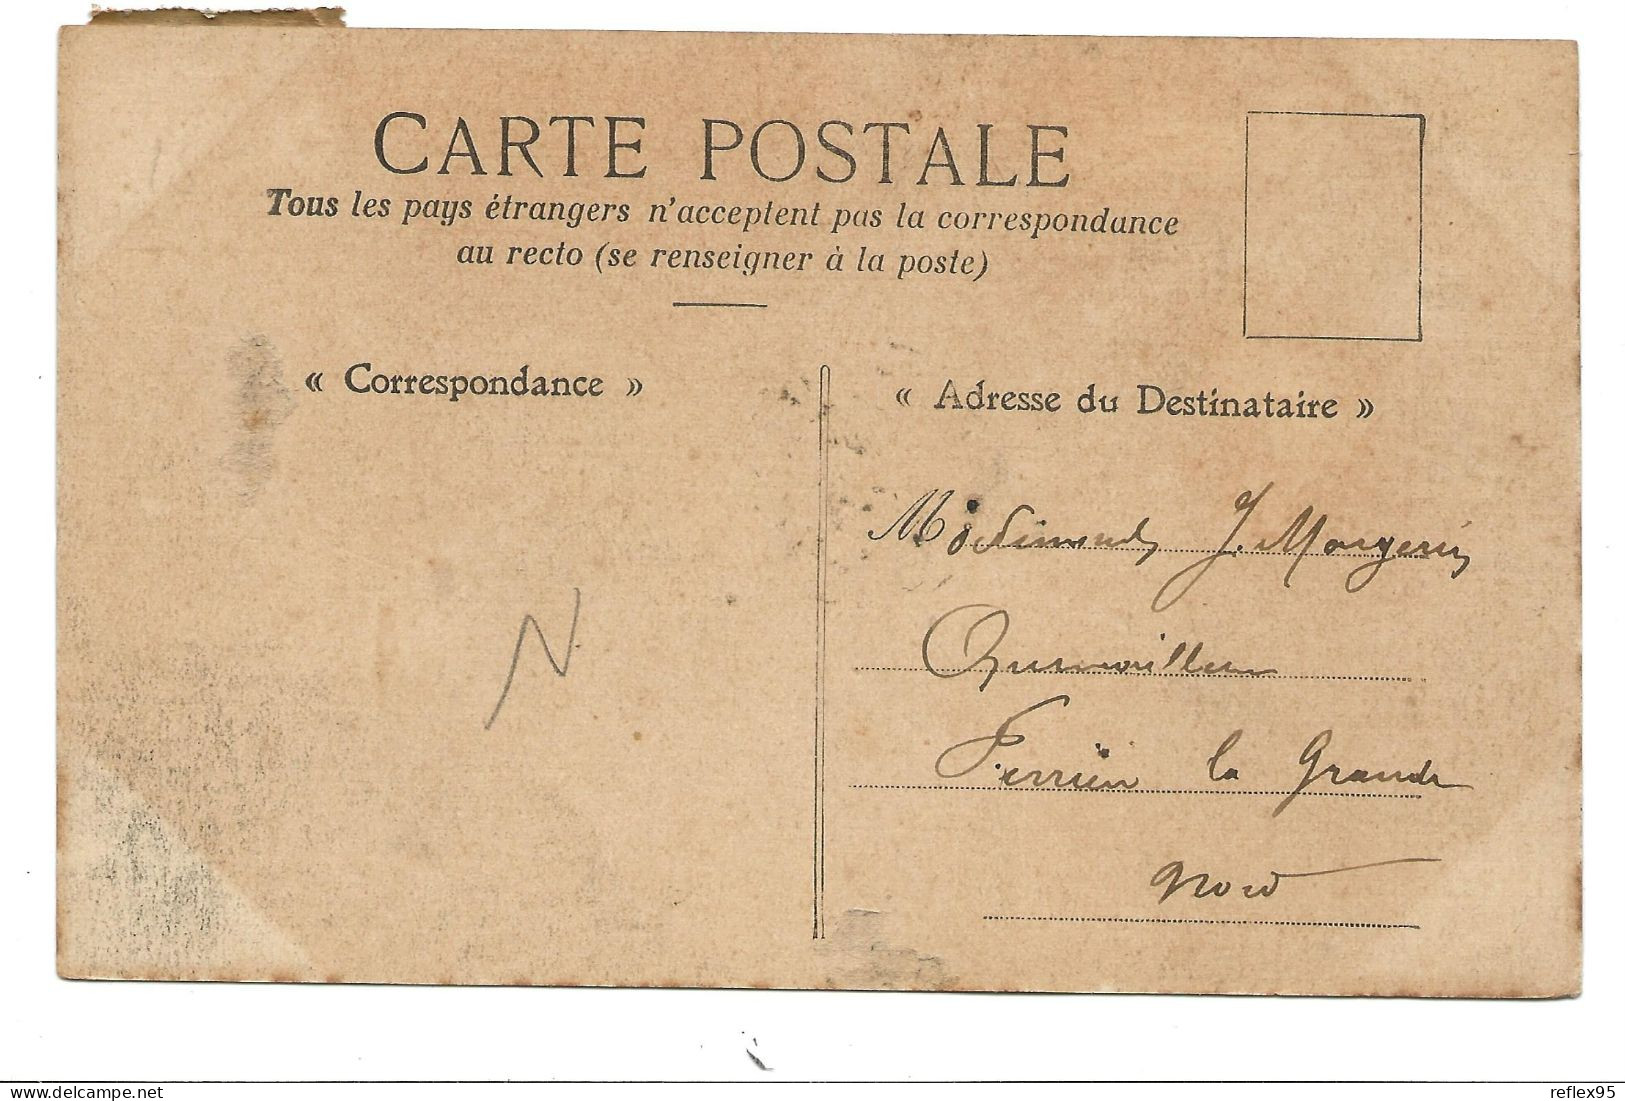 CARTE POSTALE
Tous les pays étrangers n'acceptent pas la correspondance
au recto (se renseigner à la poste)
« Correspondance »
« Adresse du Destinataire »
J.
N
la Grande
Nord
delcampe.net
reflex95